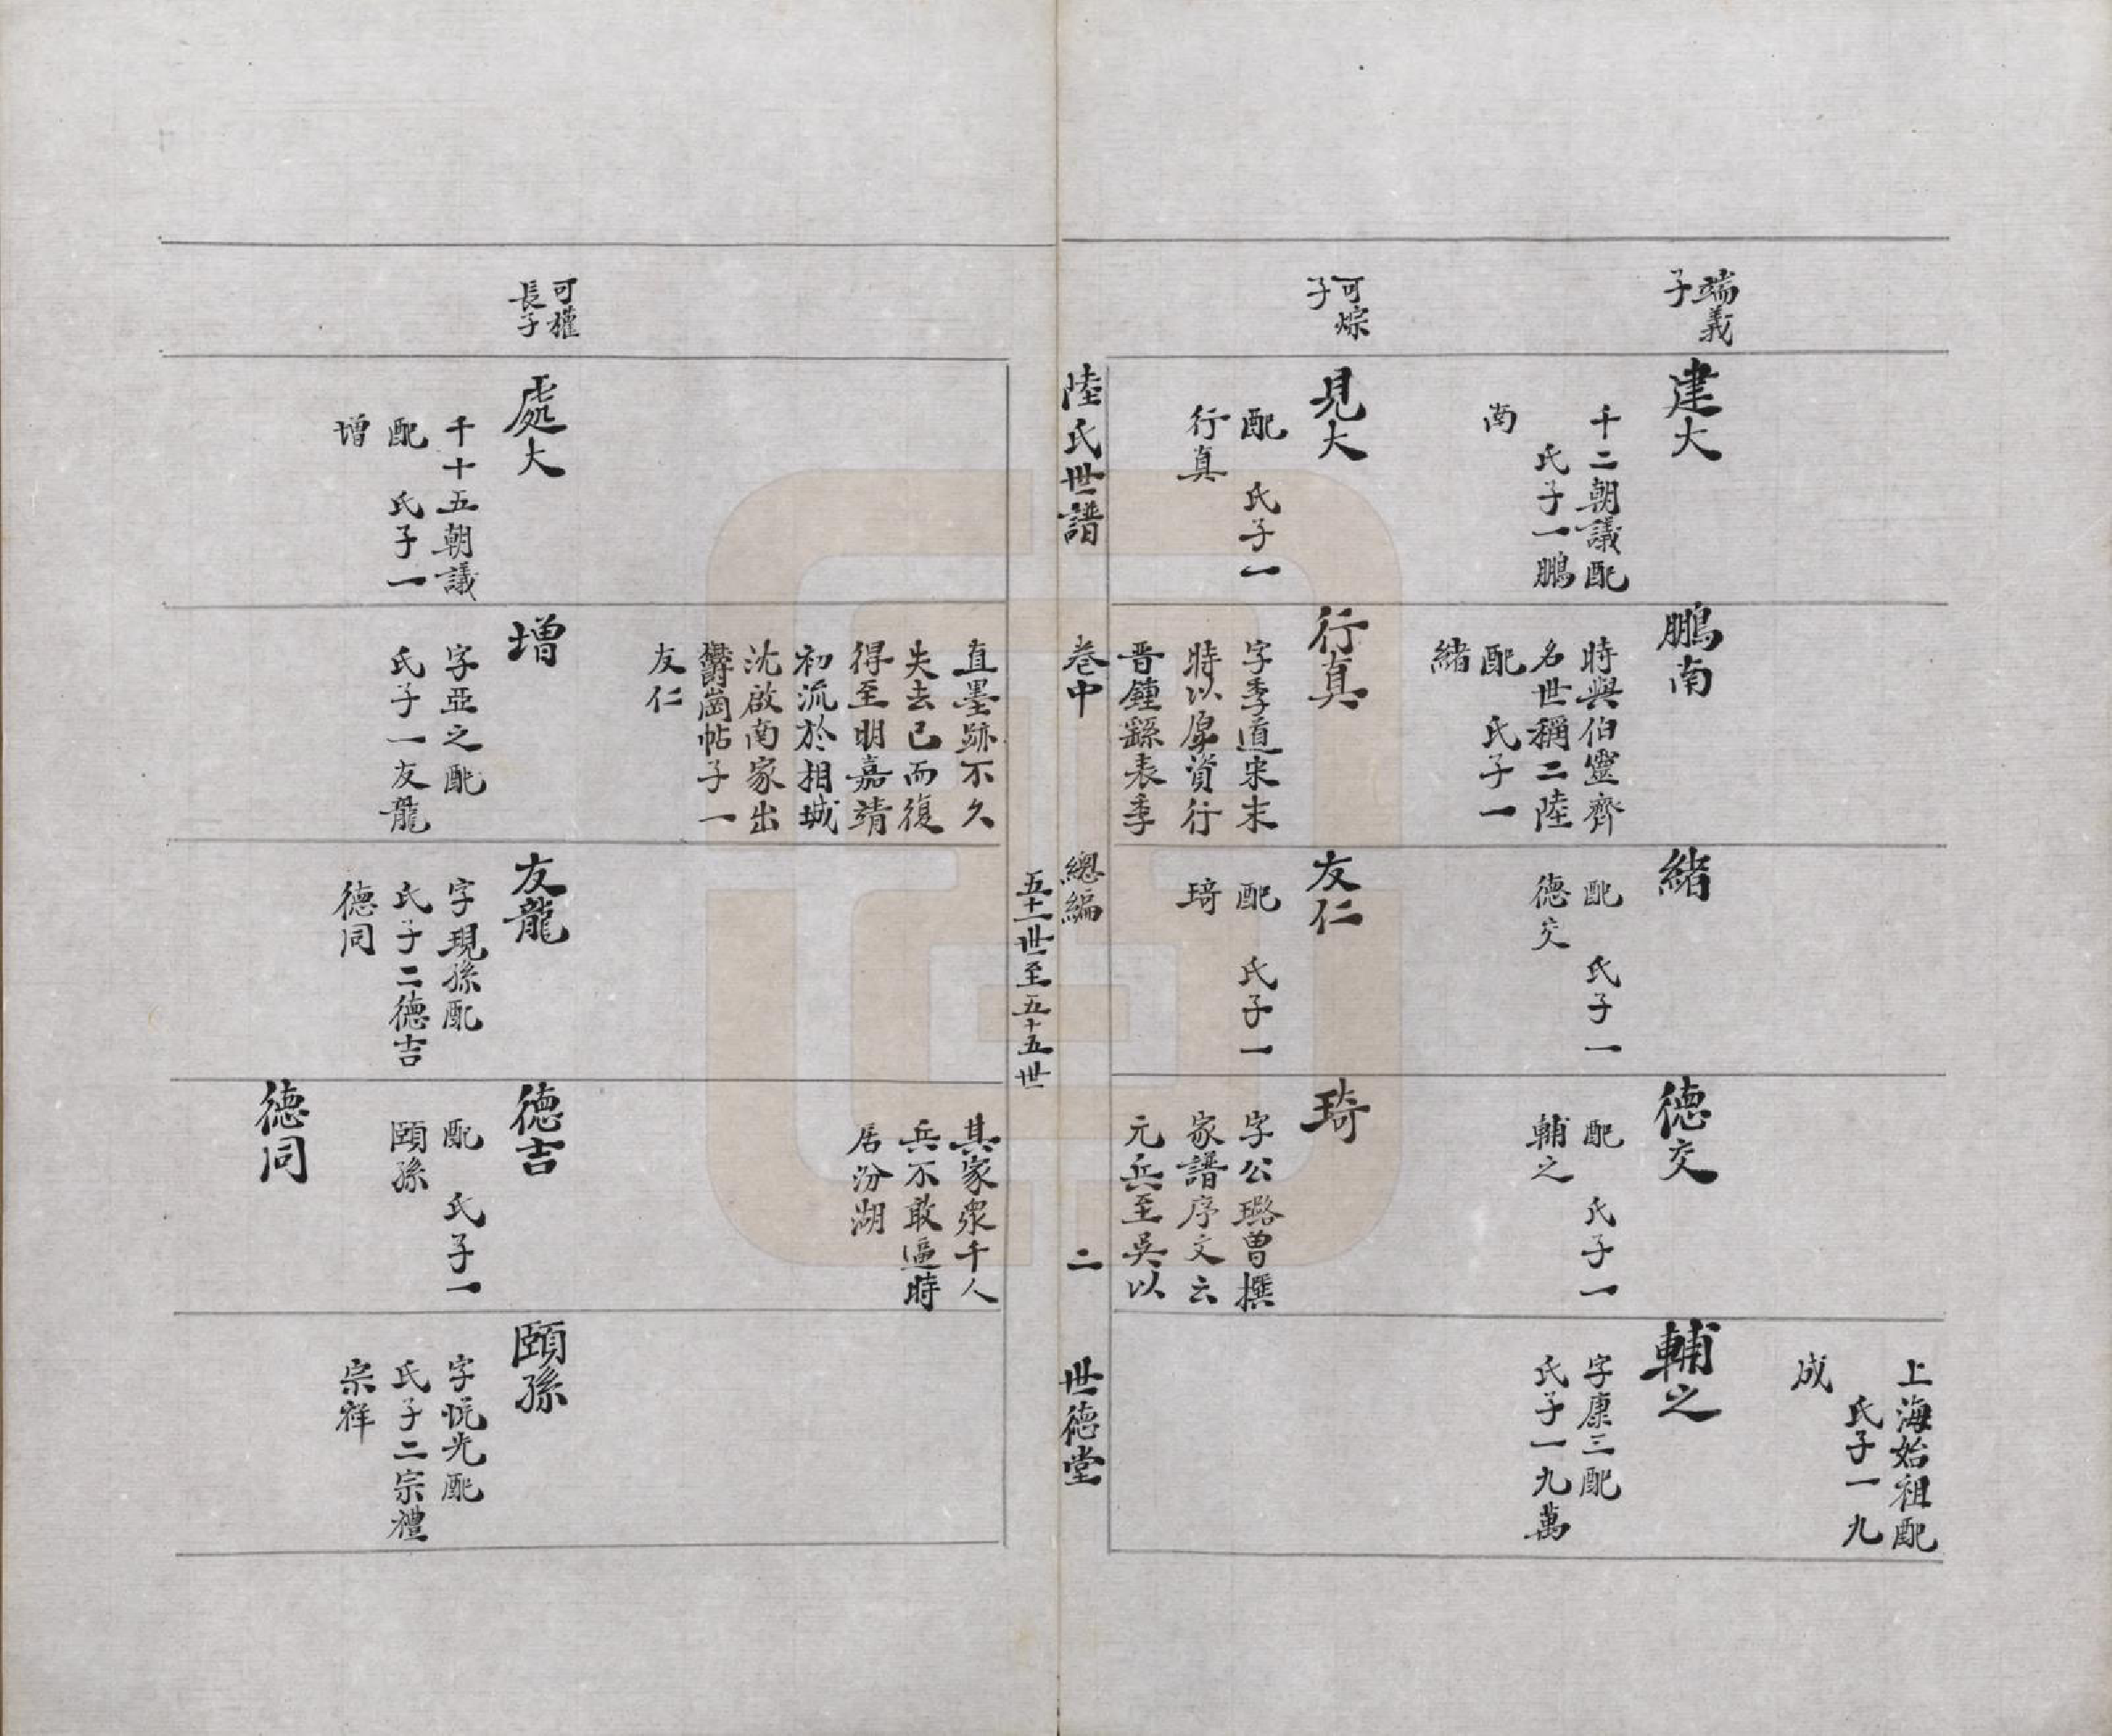 端義
子
建大
千二朝議配
氏子一鵬
南
鵬南
時與伯靈齊
名世稱二陸
配　氏子一
緒
緒
配　氏子一
德交
德交
配　氏子一
輔之
上海始祖配
氏子一九
成
輔之
字康三配
氏子一九萬
可悰
子
見大
配　氏子一
行真
行真
字季道宋末
時以厚資行
晋鍾繇表季
友仁
配　氏子一
琦
琦
字公璐曾撰
家譜序文云
元兵至吳以
陸氏世譜
卷中
總編
五十一世至五十五世
二
世德堂
直墨跡不久
失去已而復
得至明嘉靖
初流於相城
沈啟南家出
鬱岡帖子一
友仁
其家衆千人
兵不敢逼時
居汾湖
可權
長子
處大
千十五朝議
配　氏子一
增
增
字亞之配
氏子一友龍
友龍
字現孫配
氏子二德吉
德同
德吉
配　氏子一
頤孫
德同
頤孫
字悅光配
氏子二宗禮
宗祥